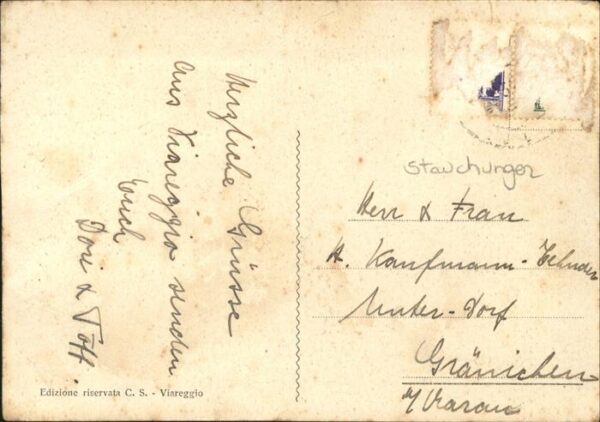 Herzliche Grüsse
aus Viareggio senden
Euch
Dori & Töff.
Edizione riservata C. S. - Viareggio
stauchungen
Herr & Frau
A. Kaufmann-Zehnder
Unter-Dorf
Gränichen
b/Aarau